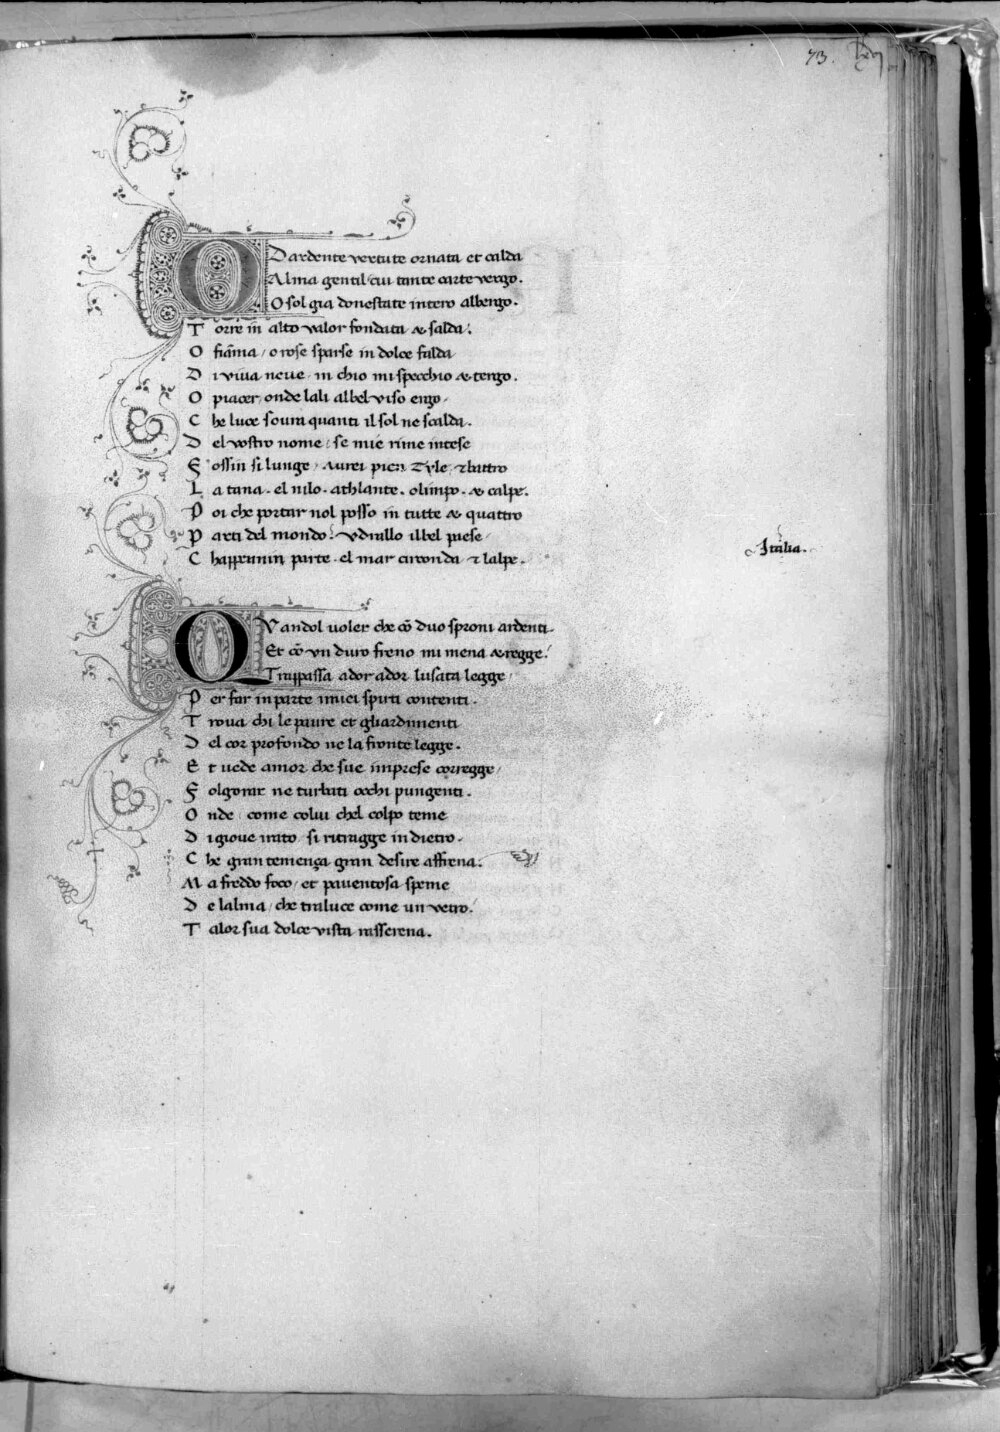 73. lxvj
O Dardente vertute ornata et calda
Alma gentil / cui tante carte vergo.
O sol gia donestate intero albergo.
Torre in alto valor fondata & salda.
O fiãma / o rose sparse in dolce falda
Di viva neve / in chio mi specchio & tergo.
O piacer / onde lali al bel viso ergo.
Che luce sovra quanti il sol ne scalda.
Del vostro nome / se mie rime intese
Fossin si lunge / avrei pien Tyle / & battro
La tana. el nilo. athlante. olimpo. & calpe.
Poi che portar nol posso in tutte & quattro
Parti del mondo / vdrallo il bel paese /
Chappennin parte. el mar circonda & lalpe.
Italia.
QVandol voler che cõ duo sproni ardenti.
Et cõ vn duro freno mi mena & regge /
Trappassa ador ador lusata legge /
Per far in parte i miei spirti contenti.
Trova chi le paure et gliardimenti
Del cor profondo ne la fronte legge.
Et vede amor che sue imprese corregge /
Folgorar ne turbati occhi pungenti.
Onde / come colui chel colpo teme
Di giove irato / si ritragge in dietro.
Che gran temença gran desire affrena.
Ma freddo foco / et paventosa speme
De lalma / che traluce come un vetro /
Talor sua dolce vista rasserena.